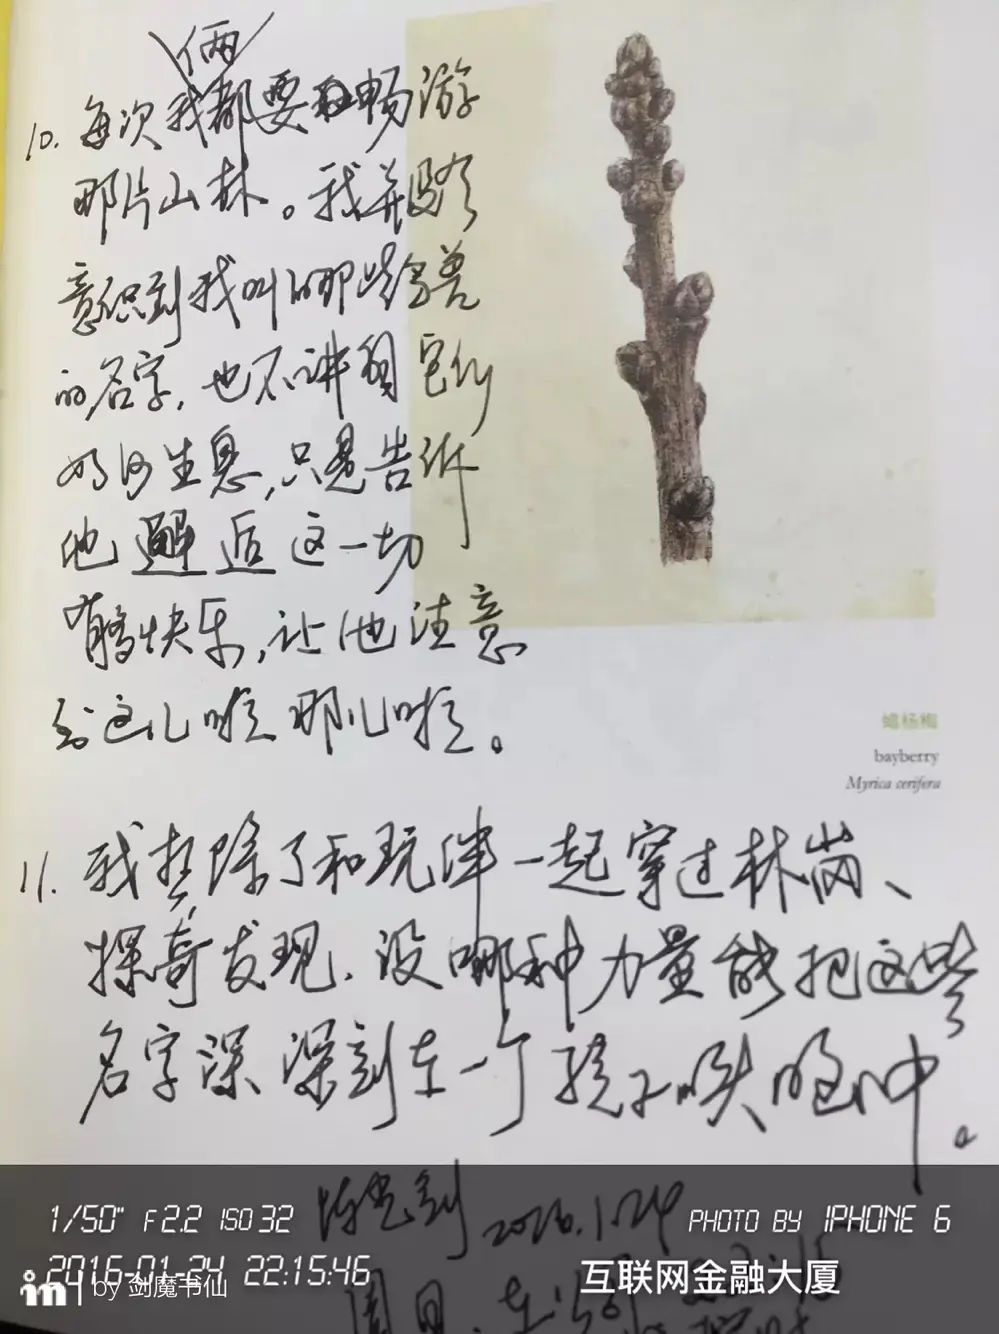 俩
10. 每次我都要在畅游
那片山林。我并没有
意识到我叫的那些鸟兽
的名字,也不讲明它们
如何生息,只是告诉
他邂逅这一切
有多快乐,让他注意
到这儿啦那儿啦。
蜡杨梅
bayberry
Myrica cerifera
11. 我想除了和玩伴一起穿过林岗、
探奇发现.没哪种力量能把这些
名字深深刻在一个孩子的脑中。
2016.1.24
周日.
1/50" F2.2 ISO 32
PHOTO BY IPHONE 6
2016-01-24 22:15:46
互联网金融大厦
in | by 剑魔书仙